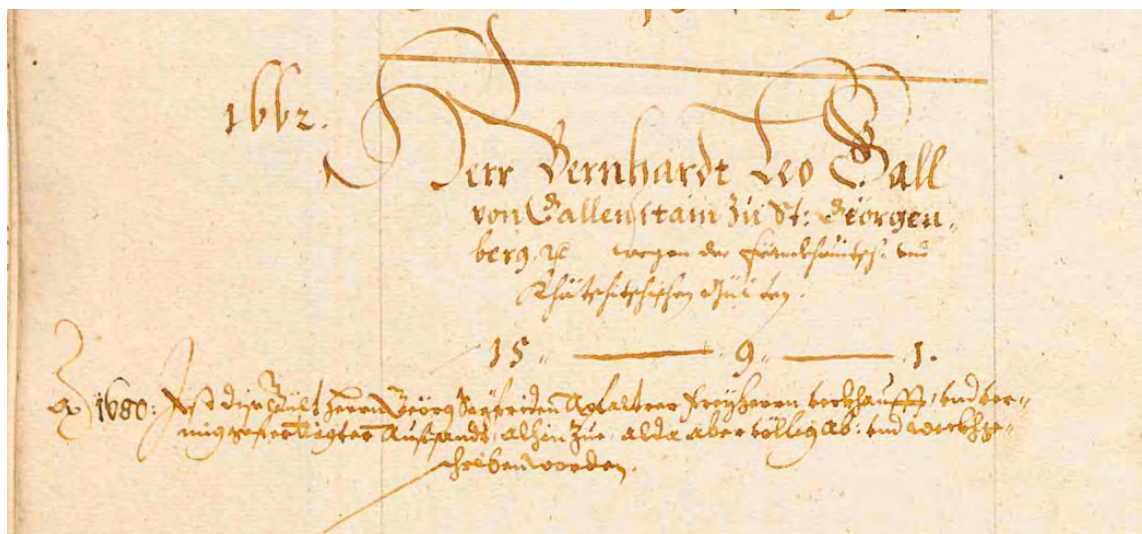 1662.
Herr Bernhardt Leo Gall
von Gallenstain zu St: Georgen„
berg, wegen der und
Gülten.
15 „ — 9 „ — 1.
1680: Ist dise Gült Herrn Georg Seyfriden Apfaltrer Freyherrn verkhaufft, und ver„
mög gefertigter Aufsandt, alhin zue, alda aber völlig ab: und weekhge„
schriben worden.